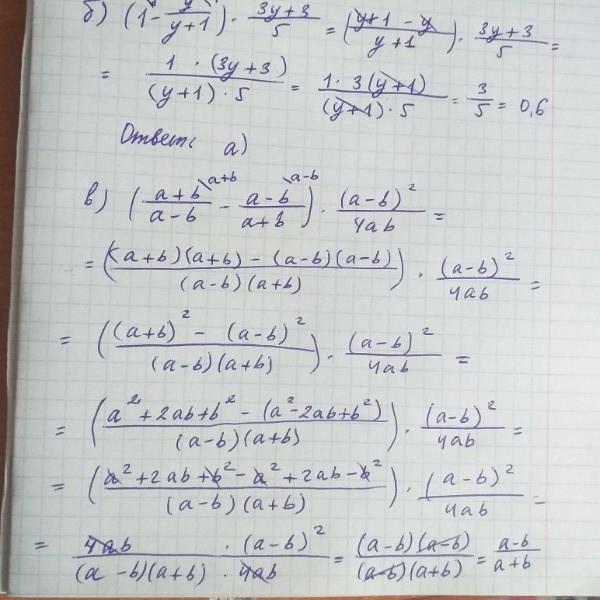 б) (1 - y/(y+1)) · (3y+3)/5 = ((y+1-y)/(y+1)) · (3y+3)/5 =
= (1 · (3y+3))/((y+1) · 5) = (1 · 3(y+1))/((y+1) · 5) = 3/5 = 0,6
Ответ: а)
в) ((a+b)/(a-b) \a+b - (a-b)/(a+b) \a-b) · (a-b)²/4ab =
= (((a+b)(a+b) - (a-b)(a-b))/((a-b)(a+b))) · (a-b)²/4ab =
= (((a+b)² - (a-b)²)/((a-b)(a+b))) · (a-b)²/4ab =
= ((a²+2ab+b² - (a²-2ab+b²))/((a-b)(a+b))) · (a-b)²/4ab =
= ((a²+2ab+b²-a²+2ab-b²)/((a-b)(a+b))) · (a-b)²/4ab =
= (4ab · (a-b)²)/((a-b)(a+b) · 4ab) = ((a-b)(a-b))/((a-b)(a+b)) = (a-b)/(a+b)